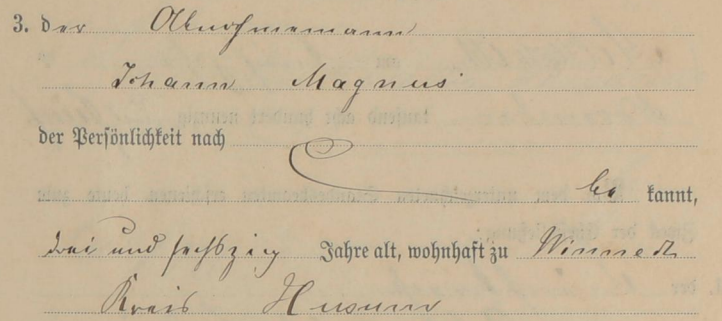 3. der Abnahmemann
Johann Magnus
der Persönlichkeit nach
be kannt,
drei und sechszig Jahre alt, wohnhaft zu Winnert
Kreis Husum